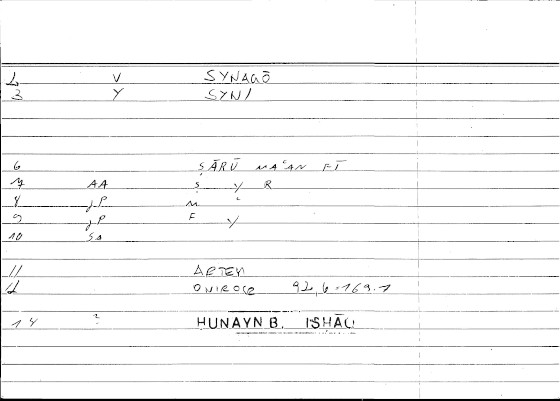 2 V SYNAGŌ
3 Y SYN/
6 ṢĀRŪ MAʿAN FĪ
7 AA Ṣ Y R
8 JP M ʿ
9 JP F Y
10 SA
11 ARTEM
12 ONIROCR 92,6=169.1
14 ? HUNAYN B. ISHĀQ